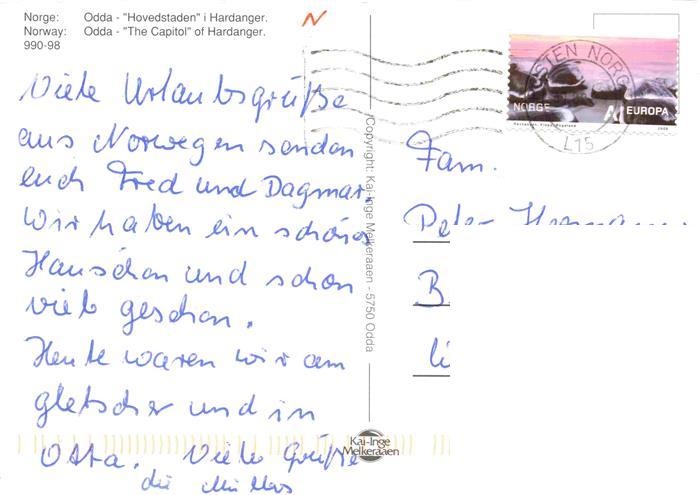 Norge: Odda - "Hovedstaden" i Hardanger.
Norway: Odda - "The Capitol" of Hardanger.
990-98
N
Viele Urlaubsgrüße
aus Norwegen senden
euch Fred und Dagmar.
Wir haben ein schönes
Häuschen und schon
viel gesehen.
Heute waren wir am
gletscher und in
Odda. Viele Grüße
die
Copyright: Kai-Inge Melkeraaen - 5750 Odda
Kai-Inge
Melkeraaen
STEN NORG
L15
NORGE A EUROPA
Fam.
Peter
B